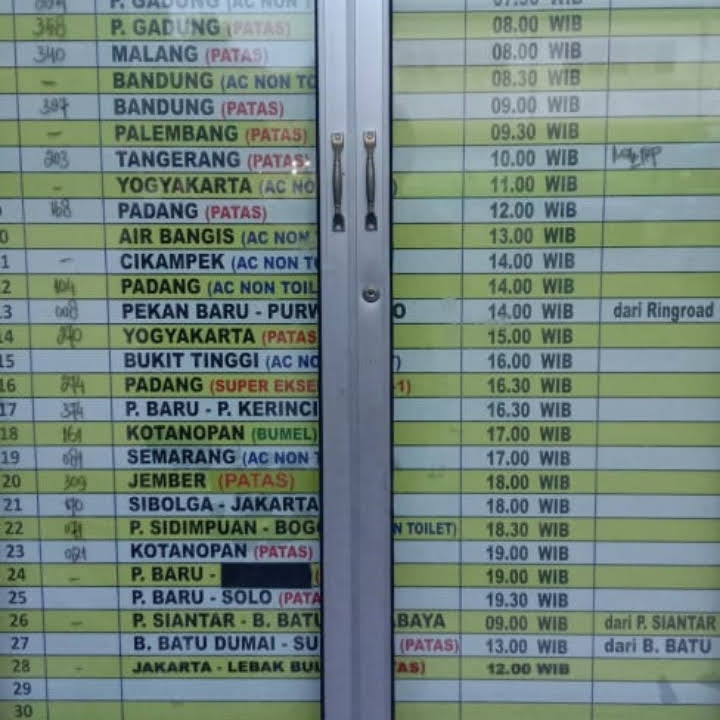 P. GADUNG (AC NON T 07.30 WIB
358 P. GADUNG (PATAS) 08.00 WIB
340 MALANG (PATAS) 08.00 WIB
- BANDUNG (AC NON TO 08.30 WIB
307 BANDUNG (PATAS) 09.00 WIB
- PALEMBANG (PATAS) 09.30 WIB
203 TANGERANG (PATAS) 10.00 WIB
- YOGYAKARTA (AC NO ) 11.00 WIB
168 PADANG (PATAS) 12.00 WIB
0 AIR BANGIS (AC NON 13.00 WIB
1 - CIKAMPEK (AC NON T 14.00 WIB
2 104 PADANG (AC NON TOIL 14.00 WIB
3 008 PEKAN BARU - PURW O 14.00 WIB dari Ringroad
14 290 YOGYAKARTA (PATAS 15.00 WIB
15 BUKIT TINGGI (AC NO ) 16.00 WIB
16 274 PADANG (SUPER EKSE -1) 16.30 WIB
17 374 P. BARU - P. KERINCI 16.30 WIB
18 161 KOTANOPAN (BUMEL) 17.00 WIB
19 081 SEMARANG (AC NON T 17.00 WIB
20 309 JEMBER (PATAS) 18.00 WIB
21 170 SIBOLGA - JAKARTA 18.00 WIB
22 071 P. SIDIMPUAN - BOG N TOILET) 18.30 WIB
23 021 KOTANOPAN (PATAS) 19.00 WIB
24 - P. BARU - ( 19.00 WIB
25 P. BARU - SOLO (PATA 19.30 WIB
26 - P. SIANTAR - B. BATU BAYA 09.00 WIB dari P. SIANTAR
27 B. BATU DUMAI - SU (PATAS) 13.00 WIB dari B. BATU
28 - JAKARTA - LEBAK BUL AS) 12.00 WIB
29
30